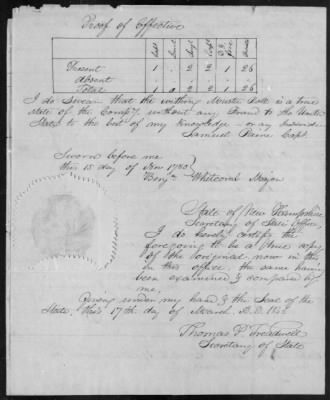 Proof of Effective
Capt Lieut Sergt Corpl D & Fife Privats
Present 1 . 2 2 1 26
Absent . . . . . .
Total 1 0 2 2 1 26
I do Swear that the within Muster Roll is a true
state of the Company without any Fraud to the United
States to the best of my Knowledge or any Individual
Samuel Paine Capt.
Sworn before me
this 15 day of Nov 1780
Benjn Whitcomb Major
State of New Hampshire
Secretary of State's Office,
I do hereby certify the
foregoing to be a true copy
of the original, now in this
in this office, the same having
been examined & compared by
me,
Given under my hand & the Seal of the
State, this 17th day of March, A.D.
Thomas P. Treadwell
Secretary of State